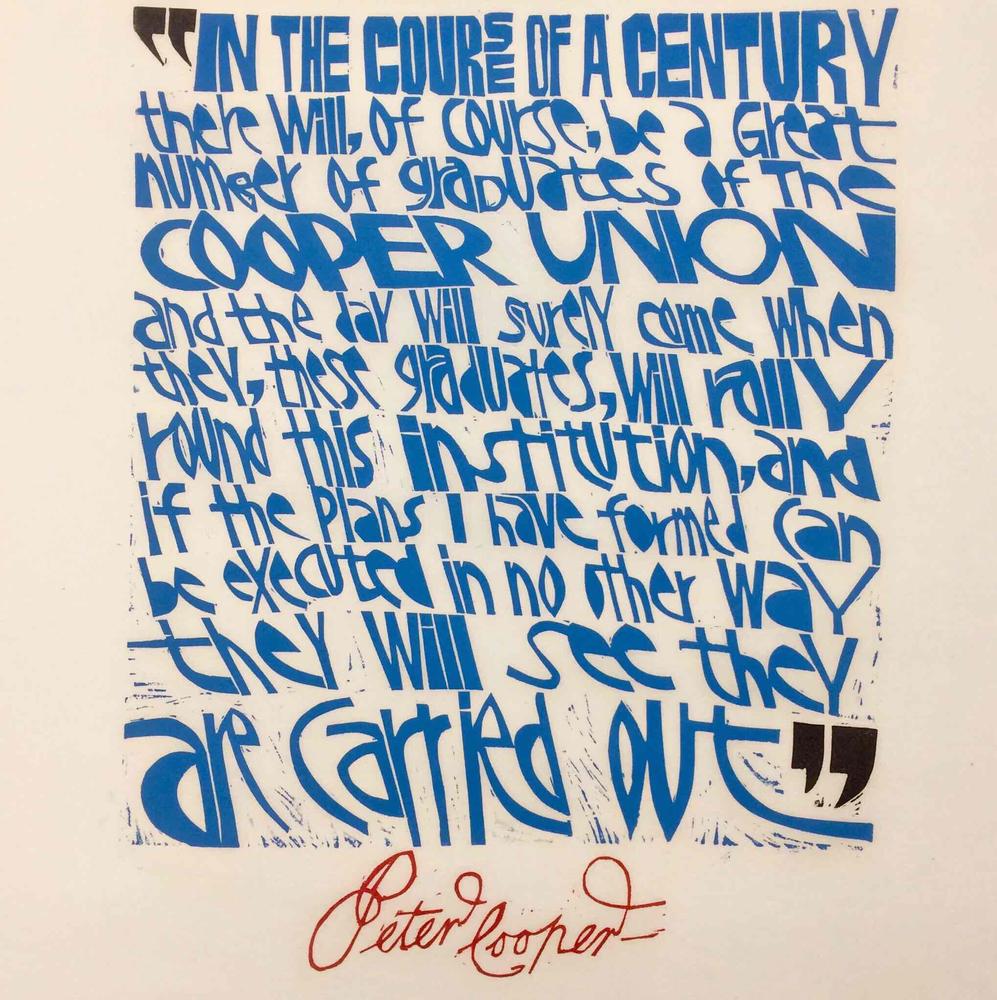 “IN THE COURSE OF A CENTURY
there Will, of course, be a Great
number of graduates of The
COOPER UNION
and the day Will surely come When
they, these graduates, Will rally
round this institution, and
if the Plans I have formed Can
be executed in no other Way
they Will see they
are Carried out”
Peter Cooper